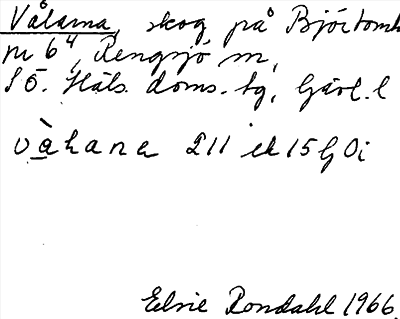 Vålarna, skog på Björtomt
nr 6⁴, Rengsjö sn,
Sö. Häls. doms.-tg, Gävl. l
våhana 211 ek 15 G Oi
Elsie Rondahl 1966.